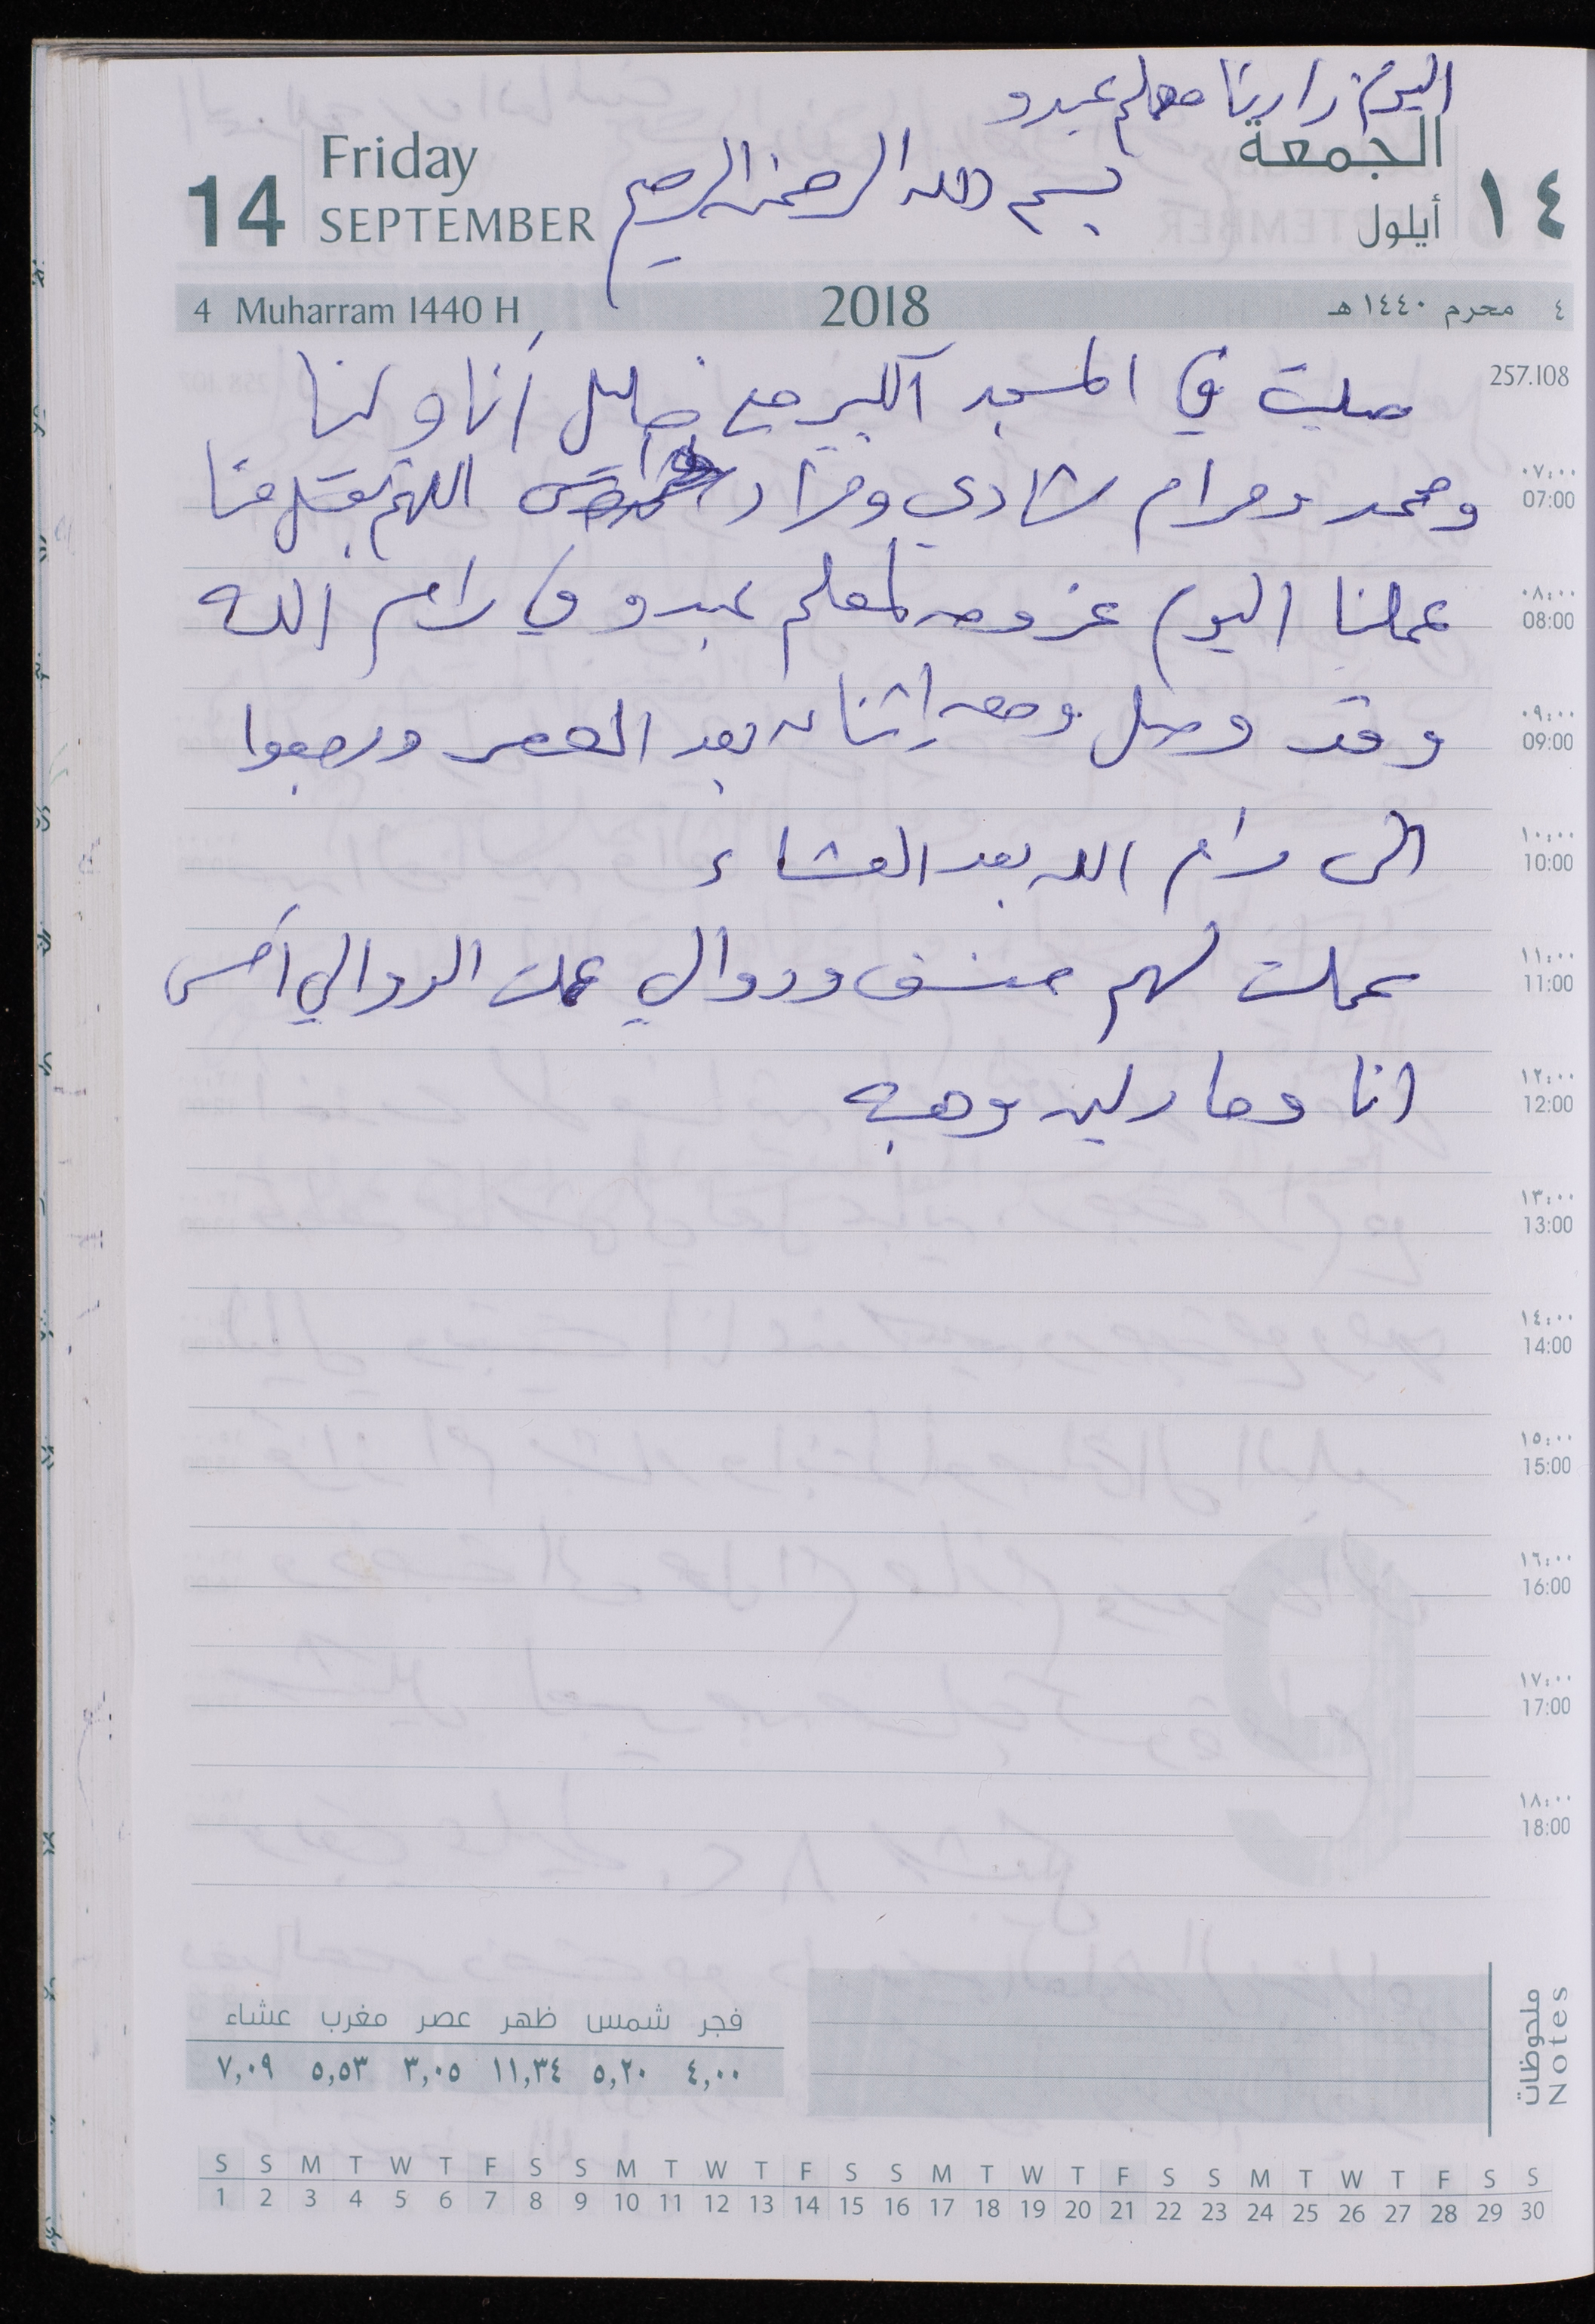 اليوم زارنا معلم عبدو
14 Friday SEPTEMBER
بسم الله الرحمن الرحيم
الجمعة ١٤ أيلول
4 Muharram 1440 H 2018 ٤ محرم ١٤٤٠ هـ
257.108
صليت في المسجد الكبير مع خليل أنا ولنا
ومحمد ومرام شادي ومراد اللهم تقبل منا
٠٧:٠٠
07:00
عملنا اليوم عزومه لمعلم عبدو في رام الله
٠٨:٠٠
08:00
وقد وصل ومعه إثنان بعد العصر ورجعوا
٠٩:٠٠
09:00
الى رام الله بعد العشاء
١٠:٠٠
10:00
عملت لهم منسف ودوالي عملت الدوالي أمس
١١:٠٠
11:00
انا ومارلين وهبه
١٢:٠٠
12:00
١٣:٠٠
13:00
١٤:٠٠
14:00
١٥:٠٠
15:00
١٦:٠٠
16:00
١٧:٠٠
17:00
١٨:٠٠
18:00
9
ملحوظات
Notes
فجر شمس ظهر عصر مغرب عشاء
٤,٠٠ ٥,٢٠ ١١,٣٤ ٣,٠٥ ٥,٥٣ ٧,٠٩
S S M T W T F S S M T W T F S S M T W T F S S M T W T F S S
1 2 3 4 5 6 7 8 9 10 11 12 13 14 15 16 17 18 19 20 21 22 23 24 25 26 27 28 29 30